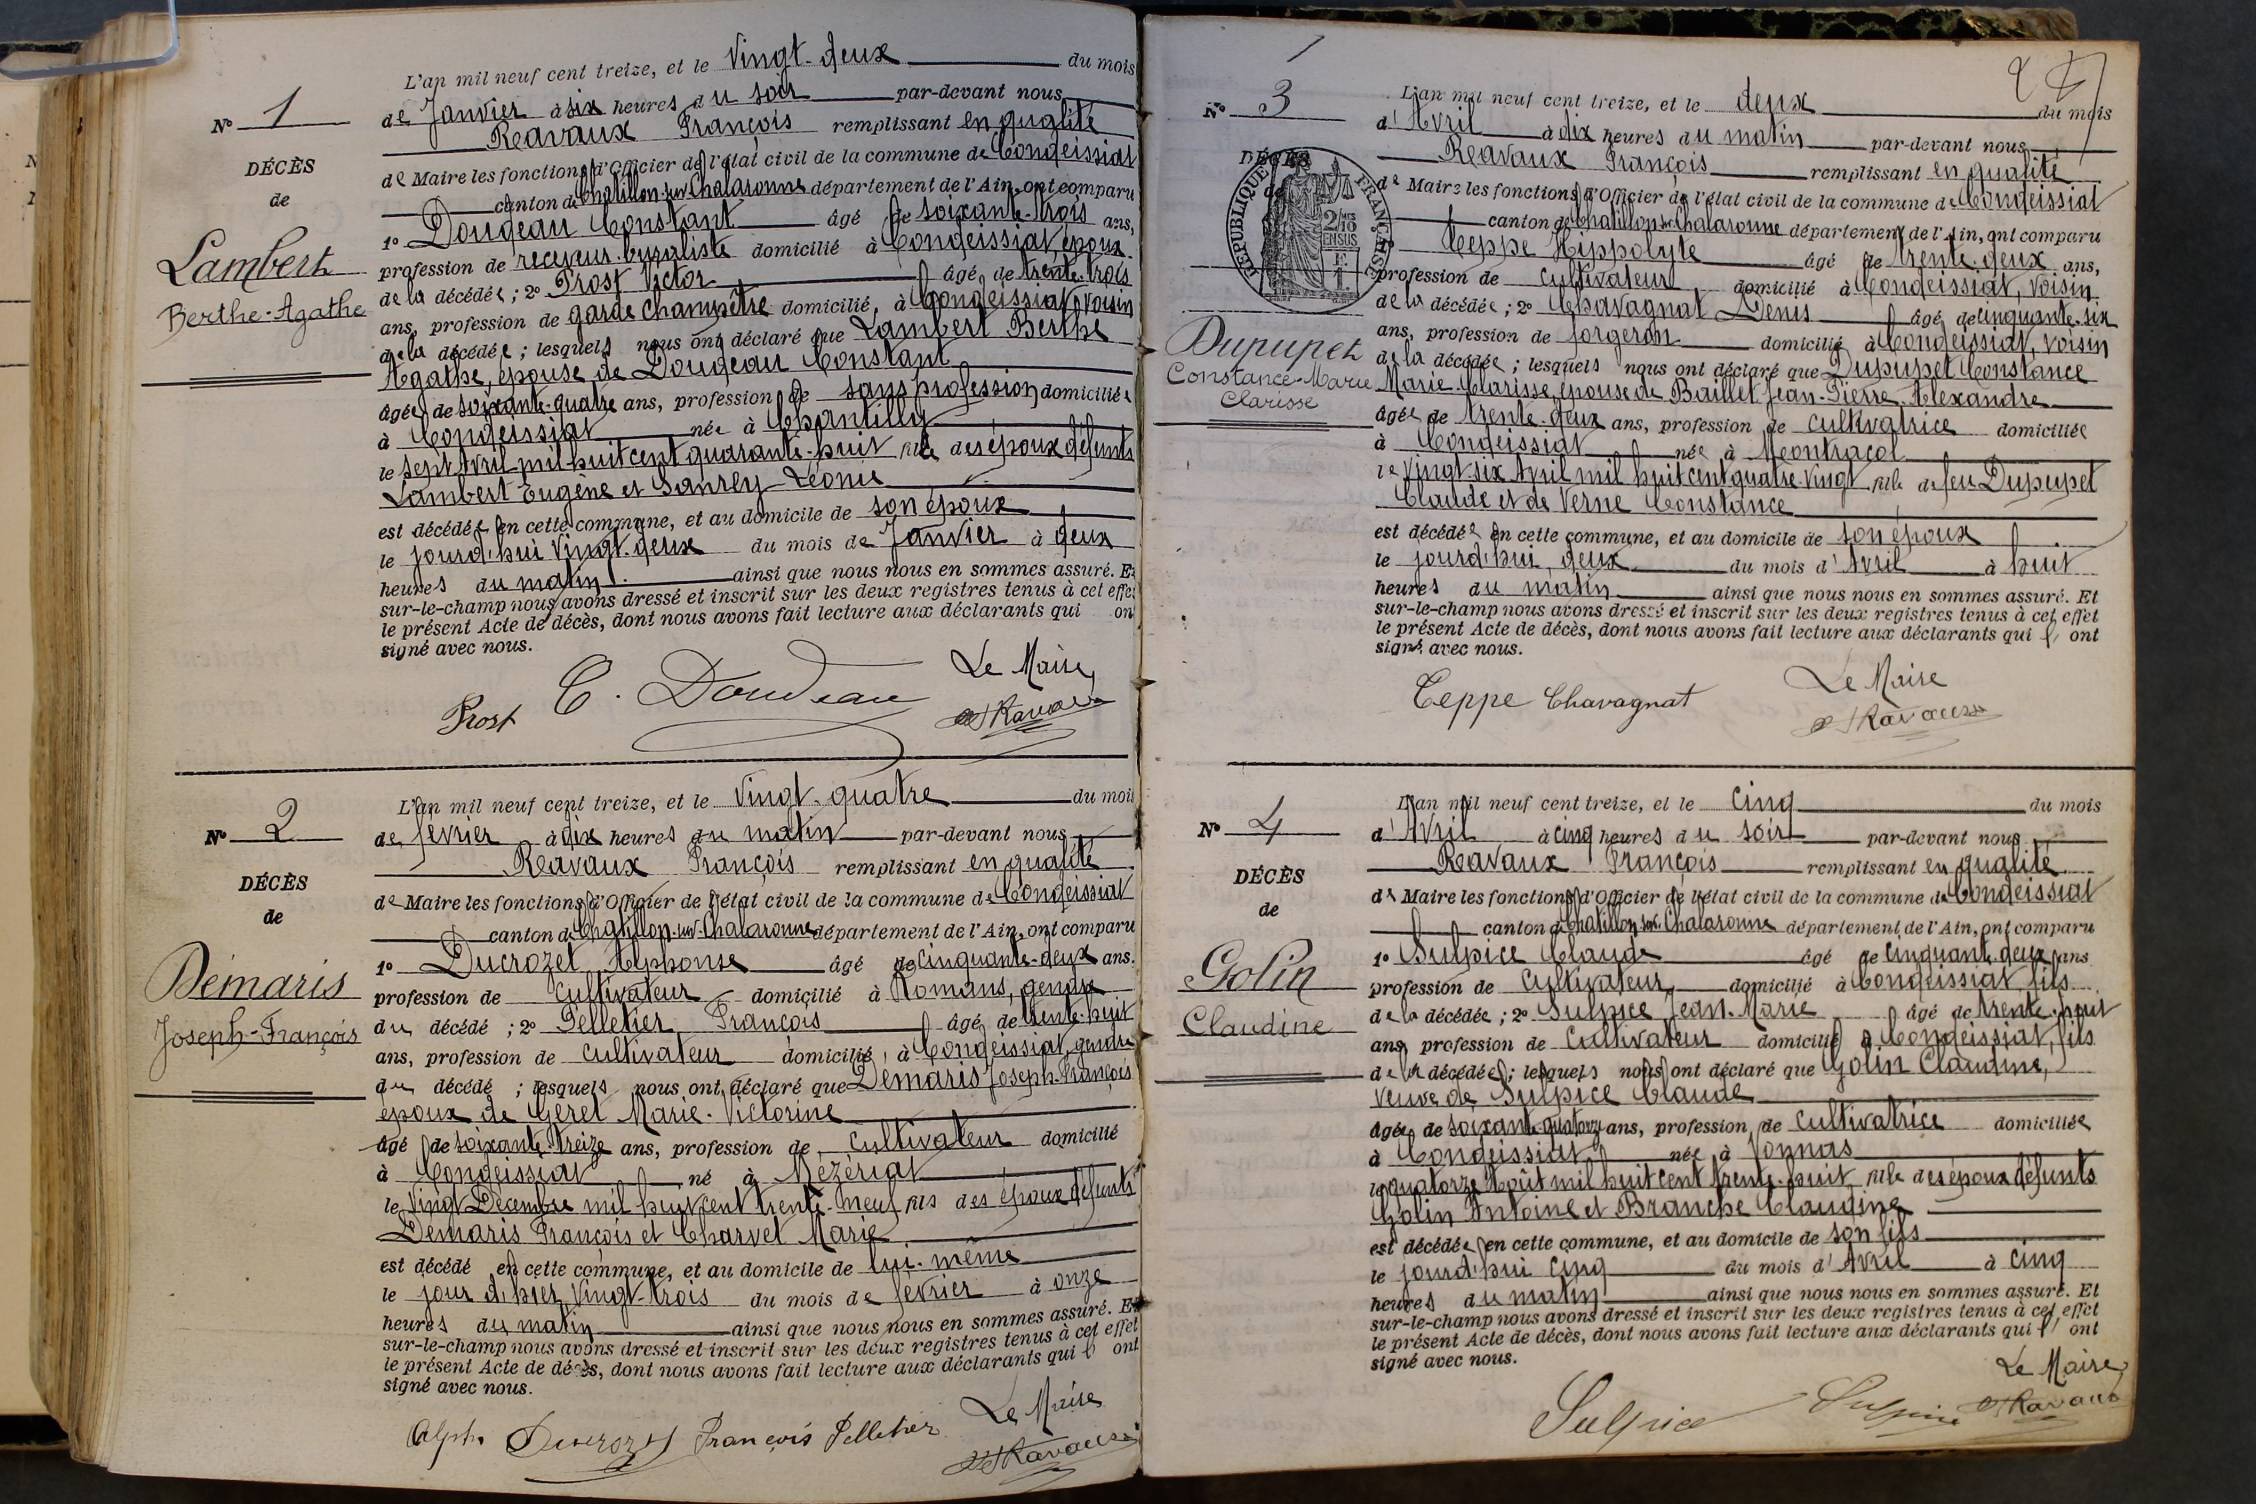 N° 1
DÉCÈS
de
Lambert
Berthe-Agathe
L'an mil neuf cent treize, et le vingt-deux du mois
de Janvier à six heures du soir par-devant nous
Ravaux François remplissant en qualité
de Maire les fonctions d'Officier de l'état civil de la commune de Condeissiat
canton de Châtillon-sur-Chalaronne département de l'Ain, ont comparu
1° Doudeau Constant âgé de soixante-trois ans,
profession de receveur buraliste domicilié à Condeissiat, époux
de la décédée ; 2° Prost Victor âgé de trente-trois
ans, profession de garde champêtre domicilié à Condeissiat, voisin
de la décédée ; lesquels nous ont déclaré que Lambert Berthe
Agathe, épouse de Doudeau Constant
âgée de soixante-quatre ans, profession de sans profession domiciliée
à Condeissiat née à Chantilly
le sept Avril mil huit cent quarante-huit fille des époux défunts
Lambert Eugène et Léonie
est décédée en cette commune, et au domicile de son époux
le jourd'hui vingt-deux du mois de Janvier à deux
heures du matin ainsi que nous nous en sommes assuré. Et
sur-le-champ nous avons dressé et inscrit sur les deux registres tenus à cet effet
le présent Acte de décès, dont nous avons fait lecture aux déclarants qui ont
signé avec nous.
Le Maire,
Prost C. Doudeau Ravaux
N° 2
DÉCÈS
de
Démaris
Joseph-François
L'an mil neuf cent treize, et le vingt-quatre du mois
de février à dix heures du matin par-devant nous
Ravaux François remplissant en qualité
de Maire les fonctions d'Officier de l'état civil de la commune de Condeissiat
canton de Châtillon-sur-Chalaronne département de l'Ain, ont comparu
1° Ducrozet Alphonse âgé de cinquante-deux ans.
profession de cultivateur domicilié à Romans, gendre
du décédé ; 2° Pelletier François âgé de trente-huit
ans, profession de cultivateur domicilié à Condeissiat, gendre
du décédé ; lesquels nous ont déclaré que Démaris Joseph-François
époux de Géret Marie-Victorine
âgé de soixante-treize ans, profession de cultivateur domicilié
à Condeissiat né à Mézériat
le vingt Décembre mil huit cent trente-neuf fils des époux défunts
Démaris François et Charvet Marie
est décédé en cette commune, et au domicile de lui-même
le jour d'hier vingt-trois du mois de février à onze
heures du matin ainsi que nous nous en sommes assuré. Et
sur-le-champ nous avons dressé et inscrit sur les deux registres tenus à cet effet
le présent Acte de décès, dont nous avons fait lecture aux déclarants qui l' ont
signé avec nous.
Le Maire
Alph. Ducrozet François Pelletier Ravaux
N° 3
DÉCÈS
de
RÉPUBLIQUE FRANÇAISE
2/10 EN SUS
Dupupet
Constance-Marie
Clarisse
L'an mil neuf cent treize, et le deux du mois
d'Avril à dix heures du matin par-devant nous
Ravaux François remplissant en qualité
de Maire les fonctions d'Officier de l'état civil de la commune de Condeissiat
canton de Châtillon-sur-Chalaronne département de l'Ain, ont comparu
Teppe Hippolyte âgé de trente-deux ans,
profession de cultivateur domicilié à Condeissiat, voisin
de la décédée ; 2° Chavagnat Denis âgé de cinquante-six
ans, profession de forgeron domicilié à Condeissiat, voisin
de la décédée ; lesquels nous ont déclaré que Dupupet Constance
Marie-Clarisse, épouse de Baillet Jean-Pierre-Alexandre
âgée de trente-deux ans, profession de cultivatrice domiciliée
à Condeissiat née à Montracol
le vingt-six Avril mil huit cent quatre-vingt fille de feu Dupupet
Claude et de Verne Constance
est décédée en cette commune, et au domicile de son époux
le jourd'hui deux du mois d'Avril à huit
heures du matin ainsi que nous nous en sommes assuré. Et
sur-le-champ nous avons dressé et inscrit sur les deux registres tenus à cet effet
le présent Acte de décès, dont nous avons fait lecture aux déclarants qui l' ont
signé avec nous.
Le Maire
Teppe Chavagnat Ravaux
N° 4
DÉCÈS
de
Golin
Claudine
L'an mil neuf cent treize, et le cinq du mois
d'Avril à cinq heures du soir par-devant nous
Ravaux François remplissant en qualité
de Maire les fonctions d'Officier de l'état civil de la commune de Condeissiat
canton de Châtillon-sur-Chalaronne département de l'Ain, ont comparu
1° Sulpice Claude âgé de cinquante-deux ans
profession de cultivateur domicilié à Condeissiat, fils
de la décédée ; 2° Sulpice Jean-Marie âgé de trente-huit
ans, profession de cultivateur domicilié à Condeissiat, fils
de la décédée ; lesquels nous ont déclaré que Golin Claudine,
veuve de Sulpice Claude
âgée de soixante-quatorze ans, profession de cultivatrice domiciliée
à Condeissiat née à Vonnas
le quatorze Août mil huit cent trente-huit fille des époux défunts
Golin Antoine et Branche Claudine
est décédée en cette commune, et au domicile de son fils
le jourd'hui cinq du mois d'Avril à cinq
heures du matin ainsi que nous nous en sommes assuré. Et
sur-le-champ nous avons dressé et inscrit sur les deux registres tenus à cet effet
le présent Acte de décès, dont nous avons fait lecture aux déclarants qui l' ont
signé avec nous.
Le Maire,
Sulpice Sulpice Ravaux